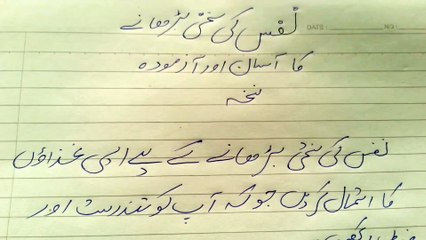 نفس کی سختی بڑھانے
DATE: NO:
کا آسان اور آزمودہ
نسخہ
نفس کی سختی بڑھانے کے لیے ایسی غذاؤں
کا استمال کریں جو کہ آپ کو تندرست اور